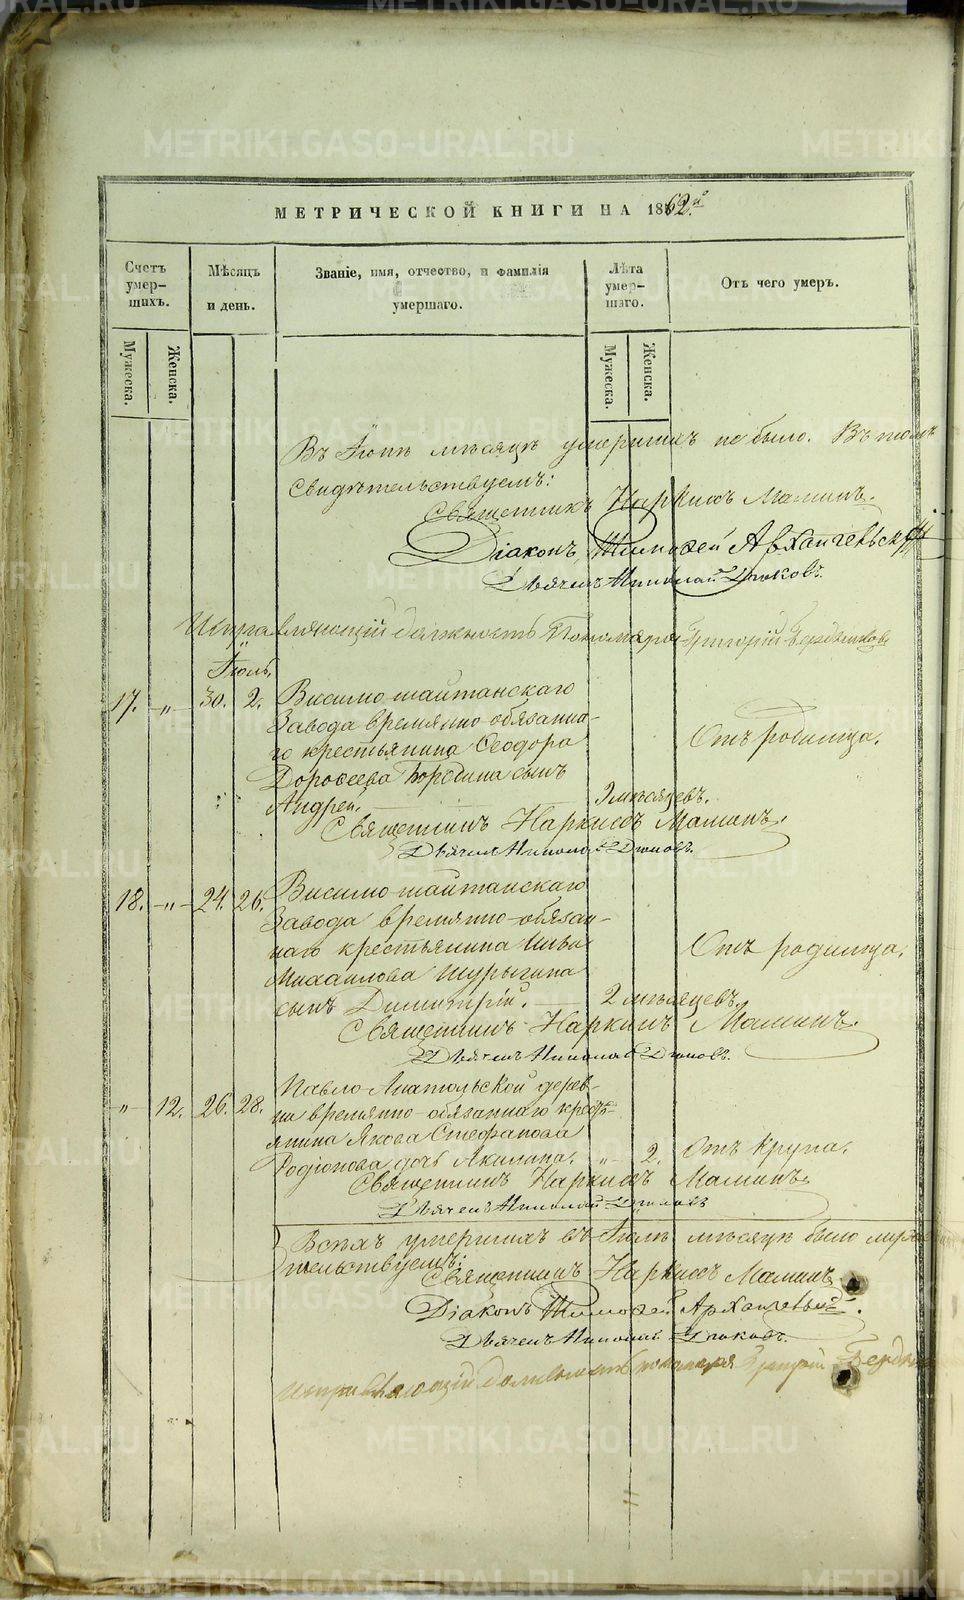 МЕТРИЧЕСКОЙ КНИГИ НА 1862й
Счетъ умер-шихъ.
Мѣсяцъ и день.
Званіе, имя, отчество, и фамилія умершаго.
Лѣта умер-шаго.
Отъ чего умеръ.
Мужеска.
Женска.
Мужеска.
Женска.
Въ Іюнѣ мѣсяцѣ умершихъ не было. Въ томъ
свидѣтельствуемъ:
Священникъ Наркисъ Маминъ.
Діаконъ Тимофей Архангельскій
Дьячекъ Николай Дюковъ.
Исправляющій должность Пономаря Григорій
Іюль.
17. „ 30. 2. Висимо-шайтанскаго
завода временно-обязанна-
го крестьянина Ѳеодора
Дороѳеева Бородина сынъ
Андрей.
9 мѣсяцевъ.
Отъ родимца.
Священникъ Наркисъ Маминъ.
Дьячекъ Николай Дюковъ.
18. „ 24. 26. Висимо-шайтанскаго
завода временно-обязан-
наго крестьянина Ивана
Михаилова Шурыгина
сынъ Димитрій.
2 мѣсяцевъ.
Отъ родимца.
Священникъ Наркисъ Маминъ.
Дьячекъ Николай Дюковъ.
„ 12. 26. 28. Павло-Анатольской дерев-
ни временно-обязаннаго крест-
янина Якова Стефанова
Родіонова дочь Акилина. „ 2. Отъ крупа.
Священникъ Наркисъ Маминъ.
Дьячекъ Николай Дюковъ
Всѣхъ умершихъ въ Іюлѣ мѣсяцѣ было
тельствуемъ:
Священникъ Наркисъ Маминъ
Діаконъ Тимофей Архангельскій.
Дьячекъ Николай Дюковъ.
Исправляющій должность пономаря Григорій
METRIKI.GASO-URAL.RU